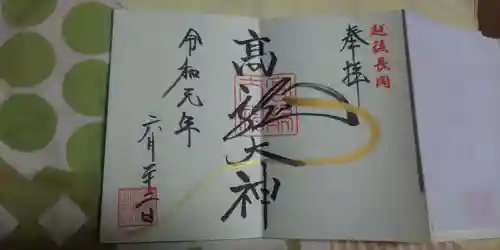 越後長岡
奉拝
高龍大神
令和元年
六月二十二日